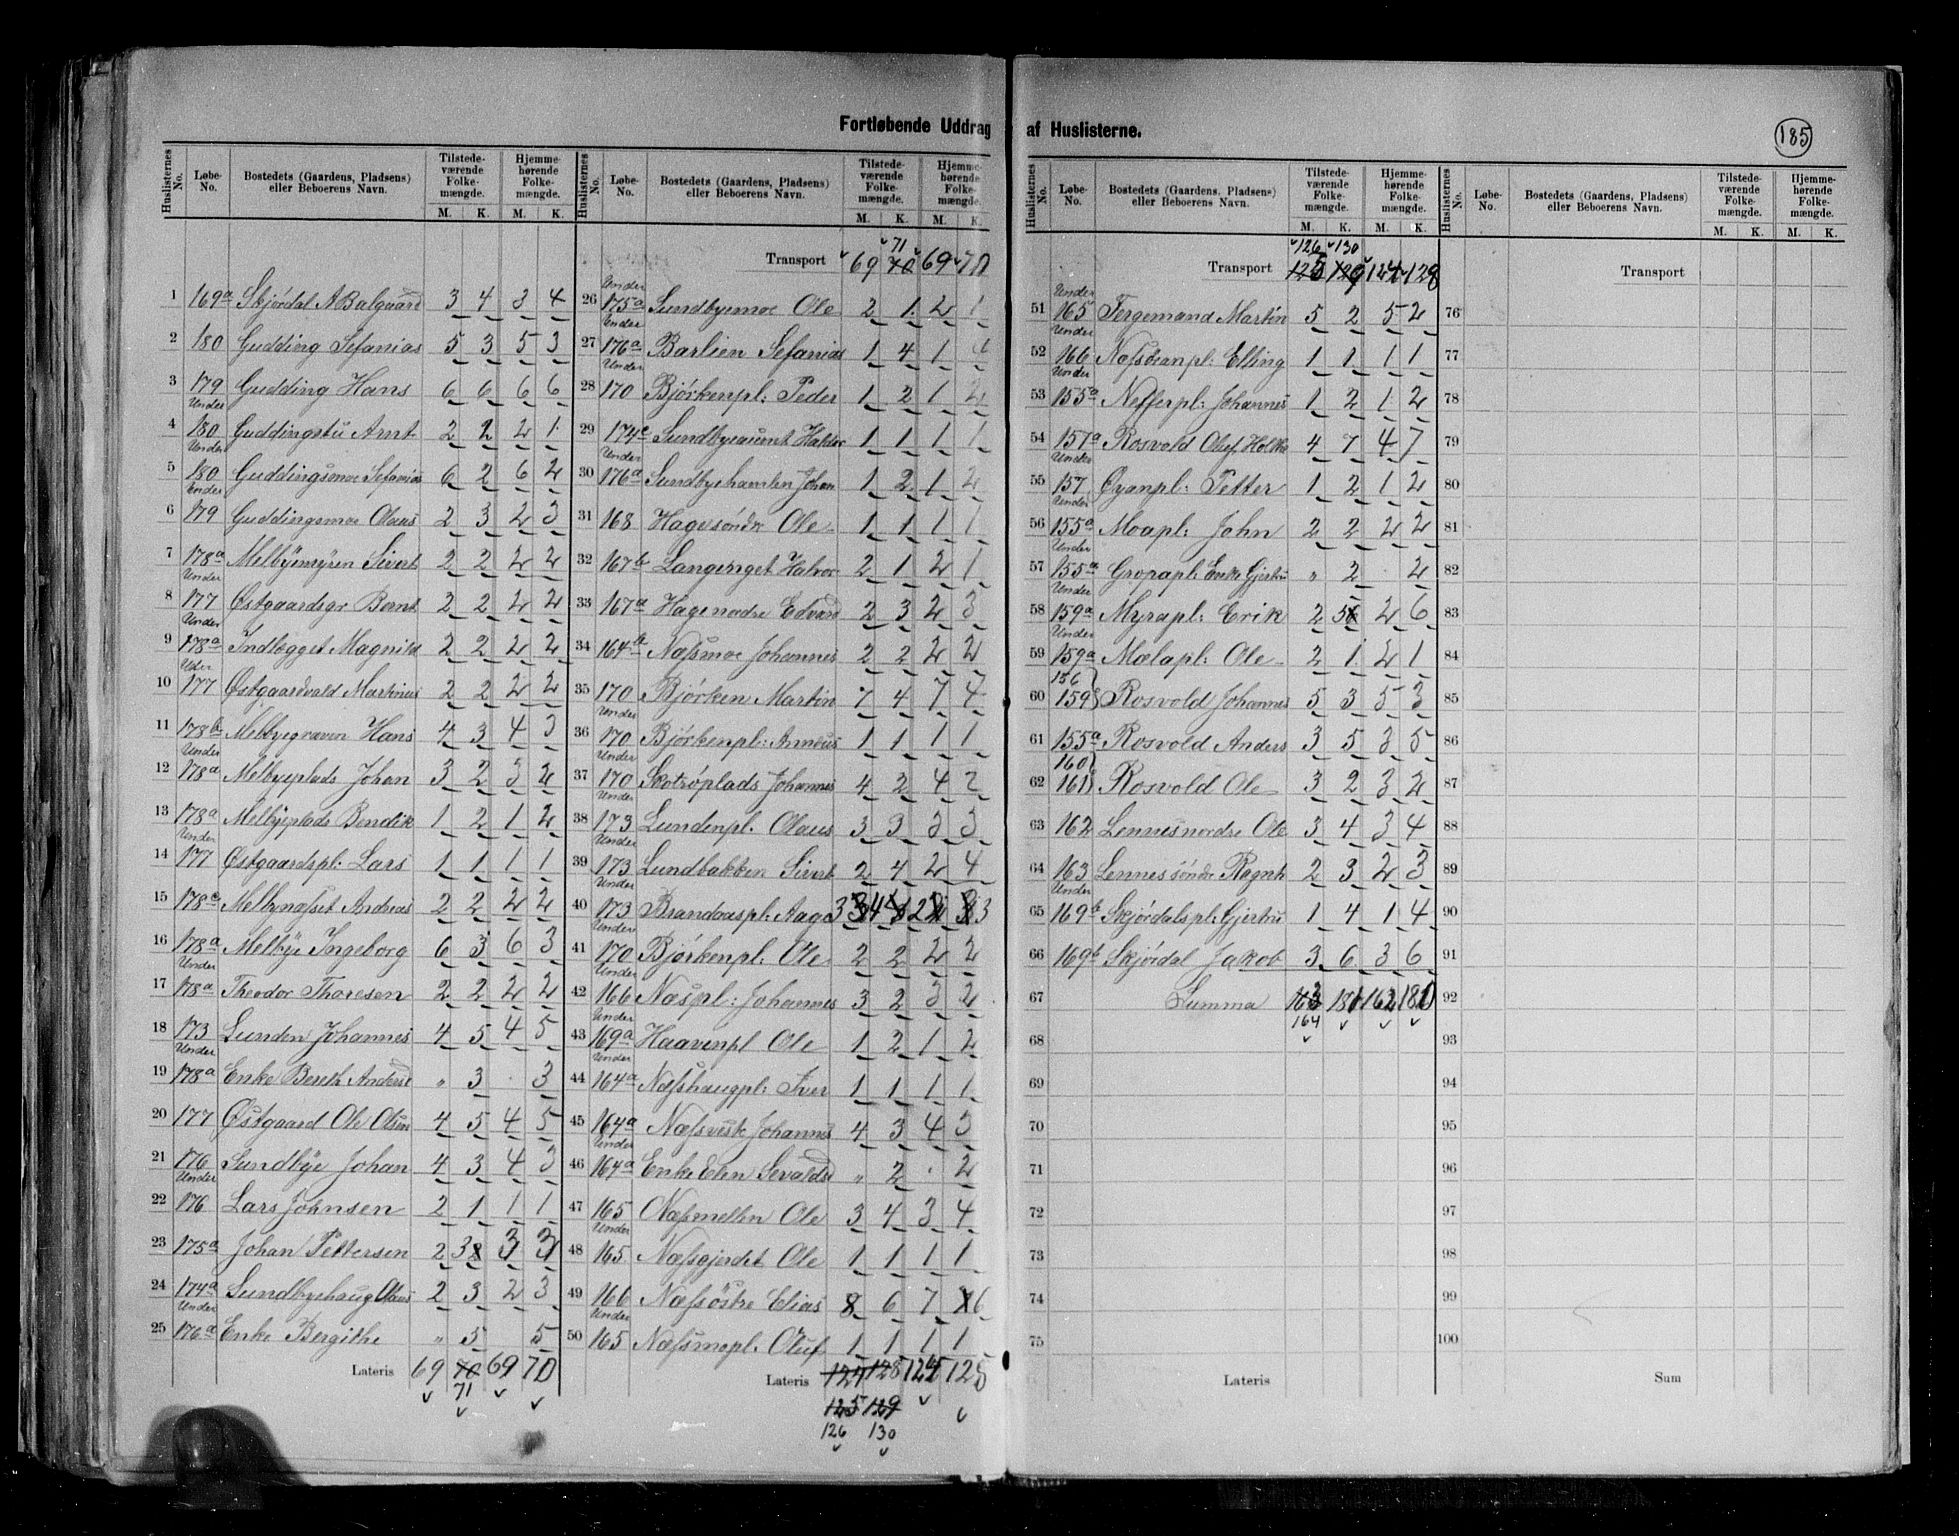 Fortløbende Uddrag af Huslisterne.
185
Huslisternes No. Løbe-No. Bostedets (Gaardens, Pladsens) eller Beboerens Navn. Tilstedeværende Folkemængde. Hjemmehørende Folkemængde.
M. K. M. K.
1 169a Skjördal A Balgaard 3 4 3 4
2 180 Gudding Sefanias 5 3 5 3
3 179 Gudding Hans 6 6 6 6
4 Under 180 Guddingstu Arnt 2 1 2 1
5 Under 180 Guddingsmoe Sefanias 6 2 6 2
6 Under 179 Guddingsmoe Olaus 2 3 2 3
7 178a Melbyemyren Sivert 2 2 2 2
8 Under 177 Østgaardsgr Bernt 2 2 2 2
9 Under 178a Indlægget Magnild 2 2 2 2
10 Under 177 Østgaardvald Martinus 2 2 2 2
11 178b Melbyegraven Hans 4 3 4 3
12 Under 178a Melbyeplads Johan 3 2 3 2
13 178a Melbyeplads Bendik 1 2 1 2
14 Under 177 Østgaardspl: Lars 1 1 1 1
15 178c Melbynæsset Andreas 2 2 2 2
16 178a Melbye Ingeborg 6 3 6 3
17 Under 178a Theodor Thoresen 2 2 2 2
18 173 Lunden Johannes 4 5 4 5
19 Under 178a Enke Bereth Anders 〃 3 · 3
20 177 Østgaard Ole Olsen 4 5 4 5
21 176 Sundbye Johan 4 3 4 3
22 Under 176 Lars Johnsen 2 1 1 1
23 175a Johan Pettersen 2 3 3 3
24 174a Sundbyehaug Olaus 2 3 2 3
25 Under 176a Enke Bergithe 〃 5 5
Lateris 69 70 69 70
71
Huslisternes No. Løbe-No. Bostedets (Gaardens, Pladsens) eller Beboerens Navn. Tilstedeværende Folkemængde. Hjemmehørende Folkemængde.
M. K. M. K.
71
Transport 69 70 69 70
26 Under 175a Sundbyemoe Ole 2 1 2 1
27 Under 176a Barlien Sefanias 1 4 1 4
28 Under 170 Bjørkenpl: Peder 1 2 1 2
29 174c Sundbyeaunt Haldor 1 1 1 1
30 Under 176a Sundbyehamlen Johan 1 2 1 2
31 168 Hagesöndre Ole 1 1 1 1
32 167b Langenget Halvor 2 1 2 1
33 167a Hagenordre Edvard 2 3 2 3
34 164b Næssmoe Johannes 2 2 2 2
35 170 Bjørken Martin 7 4 7 4
36 Under 170 Bjørkenpl: Arneus 1 1 1 1
37 Under 170 Skotröplads Johannes 4 2 4 2
38 Under 173 Lundenpl. Olaus 3 3 3 3
39 Under 173 Lundbakken Sivert 2 4 2 4
40 Under 173 Brandaaspl: Aage 3 4 2 3
41 Under 170 Bjørkenpl: Ole 2 2 2 2
42 Under 166 Næspl: Johannes 3 2 3 2
43 Under 169a Haavenpl Ole 1 2 1 2
44 Under 164a Næsshaugpl: Iver 1 1 1 1
45 164a Næssvestre Johannes 4 3 4 3
46 Under 164a Enke Elen Sevaldsd 〃 2 · 2
47 165 Næssmellin Ole 3 4 3 4
48 Under 165 Næssgjerdet Ole 1 1 1 1
49 166 Næssöstre Elias 8 6 7 6
50 Under 165 Næssmopl: Oluf 1 1 1 1
Lateris 124 128 124 128
125 129
126 130
Huslisternes No. Løbe-No. Bostedets (Gaardens, Pladsens) eller Beboerens Navn. Tilstedeværende Folkemængde. Hjemmehørende Folkemængde.
M. K. M. K.
126 130
Transport 125 129 124 128
51 Under 165 Fergemand Martin 5 2 5 2
52 Under 166 Næsstranpl: Elling 1 1 1 1
53 Under 155a Nefferpl: Johannes 1 2 1 2
54 157a Rosvold Oluf Holte 4 7 4 7
55 Under 157 Øyanpl: Petter 1 2 1 2
56 Under 155a Moapl: John 2 2 2 2
57 Under 155a Gropapl: Enke Gjertru 〃 2 · 2
58 Under 159a Myrapl: Erik 2 5 2 6
59 Under 159a Mælapl: Ole 2 1 2 1
60 156 159 Rosvold Johannes 5 3 5 3
61 155a Rosvold Anders 3 5 3 5
62 160 161 Rosvold Ole 3 2 3 2
63 162 Lennesnordre Ole 3 4 3 4
64 163 Lennes söndre Ragnh 2 3 2 3
65 Under 169b Skjördalspl: Gjertru 1 4 1 4
66 169b Skjördal Jakob 3 6 3 6
67 Summa 163 181 162 180
68 164
69
70
71
72
73
74
75
Lateris
Huslisternes No. Løbe-No. Bostedets (Gaardens, Pladsens) eller Beboerens Navn. Tilstedeværende Folkemængde. Hjemmehørende Folkemængde.
M. K. M. K.
Transport
76
77
78
79
80
81
82
83
84
85
86
87
88
89
90
91
92
93
94
95
96
97
98
99
100
Sum